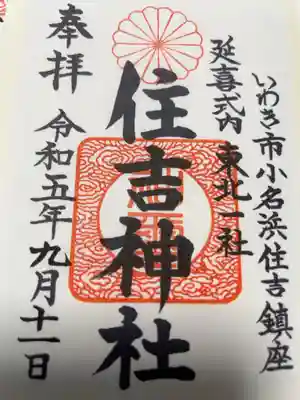 いわき市小名浜住吉鎮座
延喜式内 東北一社
住吉神社
奉拝 令和五年九月十一日